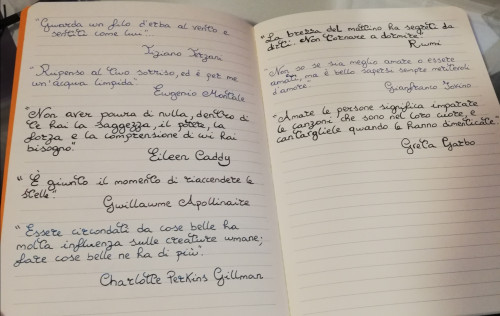 "Guarda un filo d'erba al vento e
sentiti come lui".
Tiziano Terzani
"Ripenso al tuo sorriso, ed è per me
un'acqua limpida"
Eugenio Montale
"Non aver paura di nulla, dentro di
te hai la saggezza, il potere, la
forza e la comprensione di cui hai
bisogno".
Eileen Caddy
"È giunto il momento di riaccendere le
stelle".
Guillaume Apollinaire
"Essere circondati da cose belle ha
molta influenza sulle creature umane;
fare cose belle ne ha di più".
Charlotte Perkins Gillman
"La brezza del mattino ha segreti da
dirti. Non tornare a dormire"
Rumi
"Non so se sia meglio amare o essere
amati, ma è bello sapersi sempre meritevoli
d'amore."
Gianfranco
"Amare le persone significa imparare
le canzoni che sono nel loro cuore, e
cantargliele quando le hanno dimenticate"
Greta Garbo